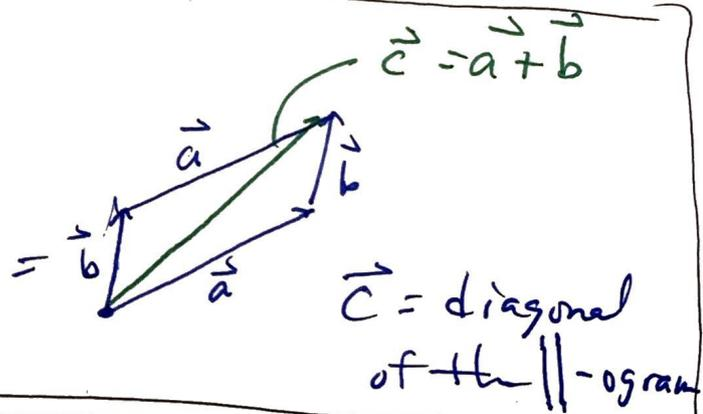 c⃗ = a⃗ + b⃗
a⃗
b⃗
= b⃗
a⃗
c⃗ = diagonal
of the ||-ogram